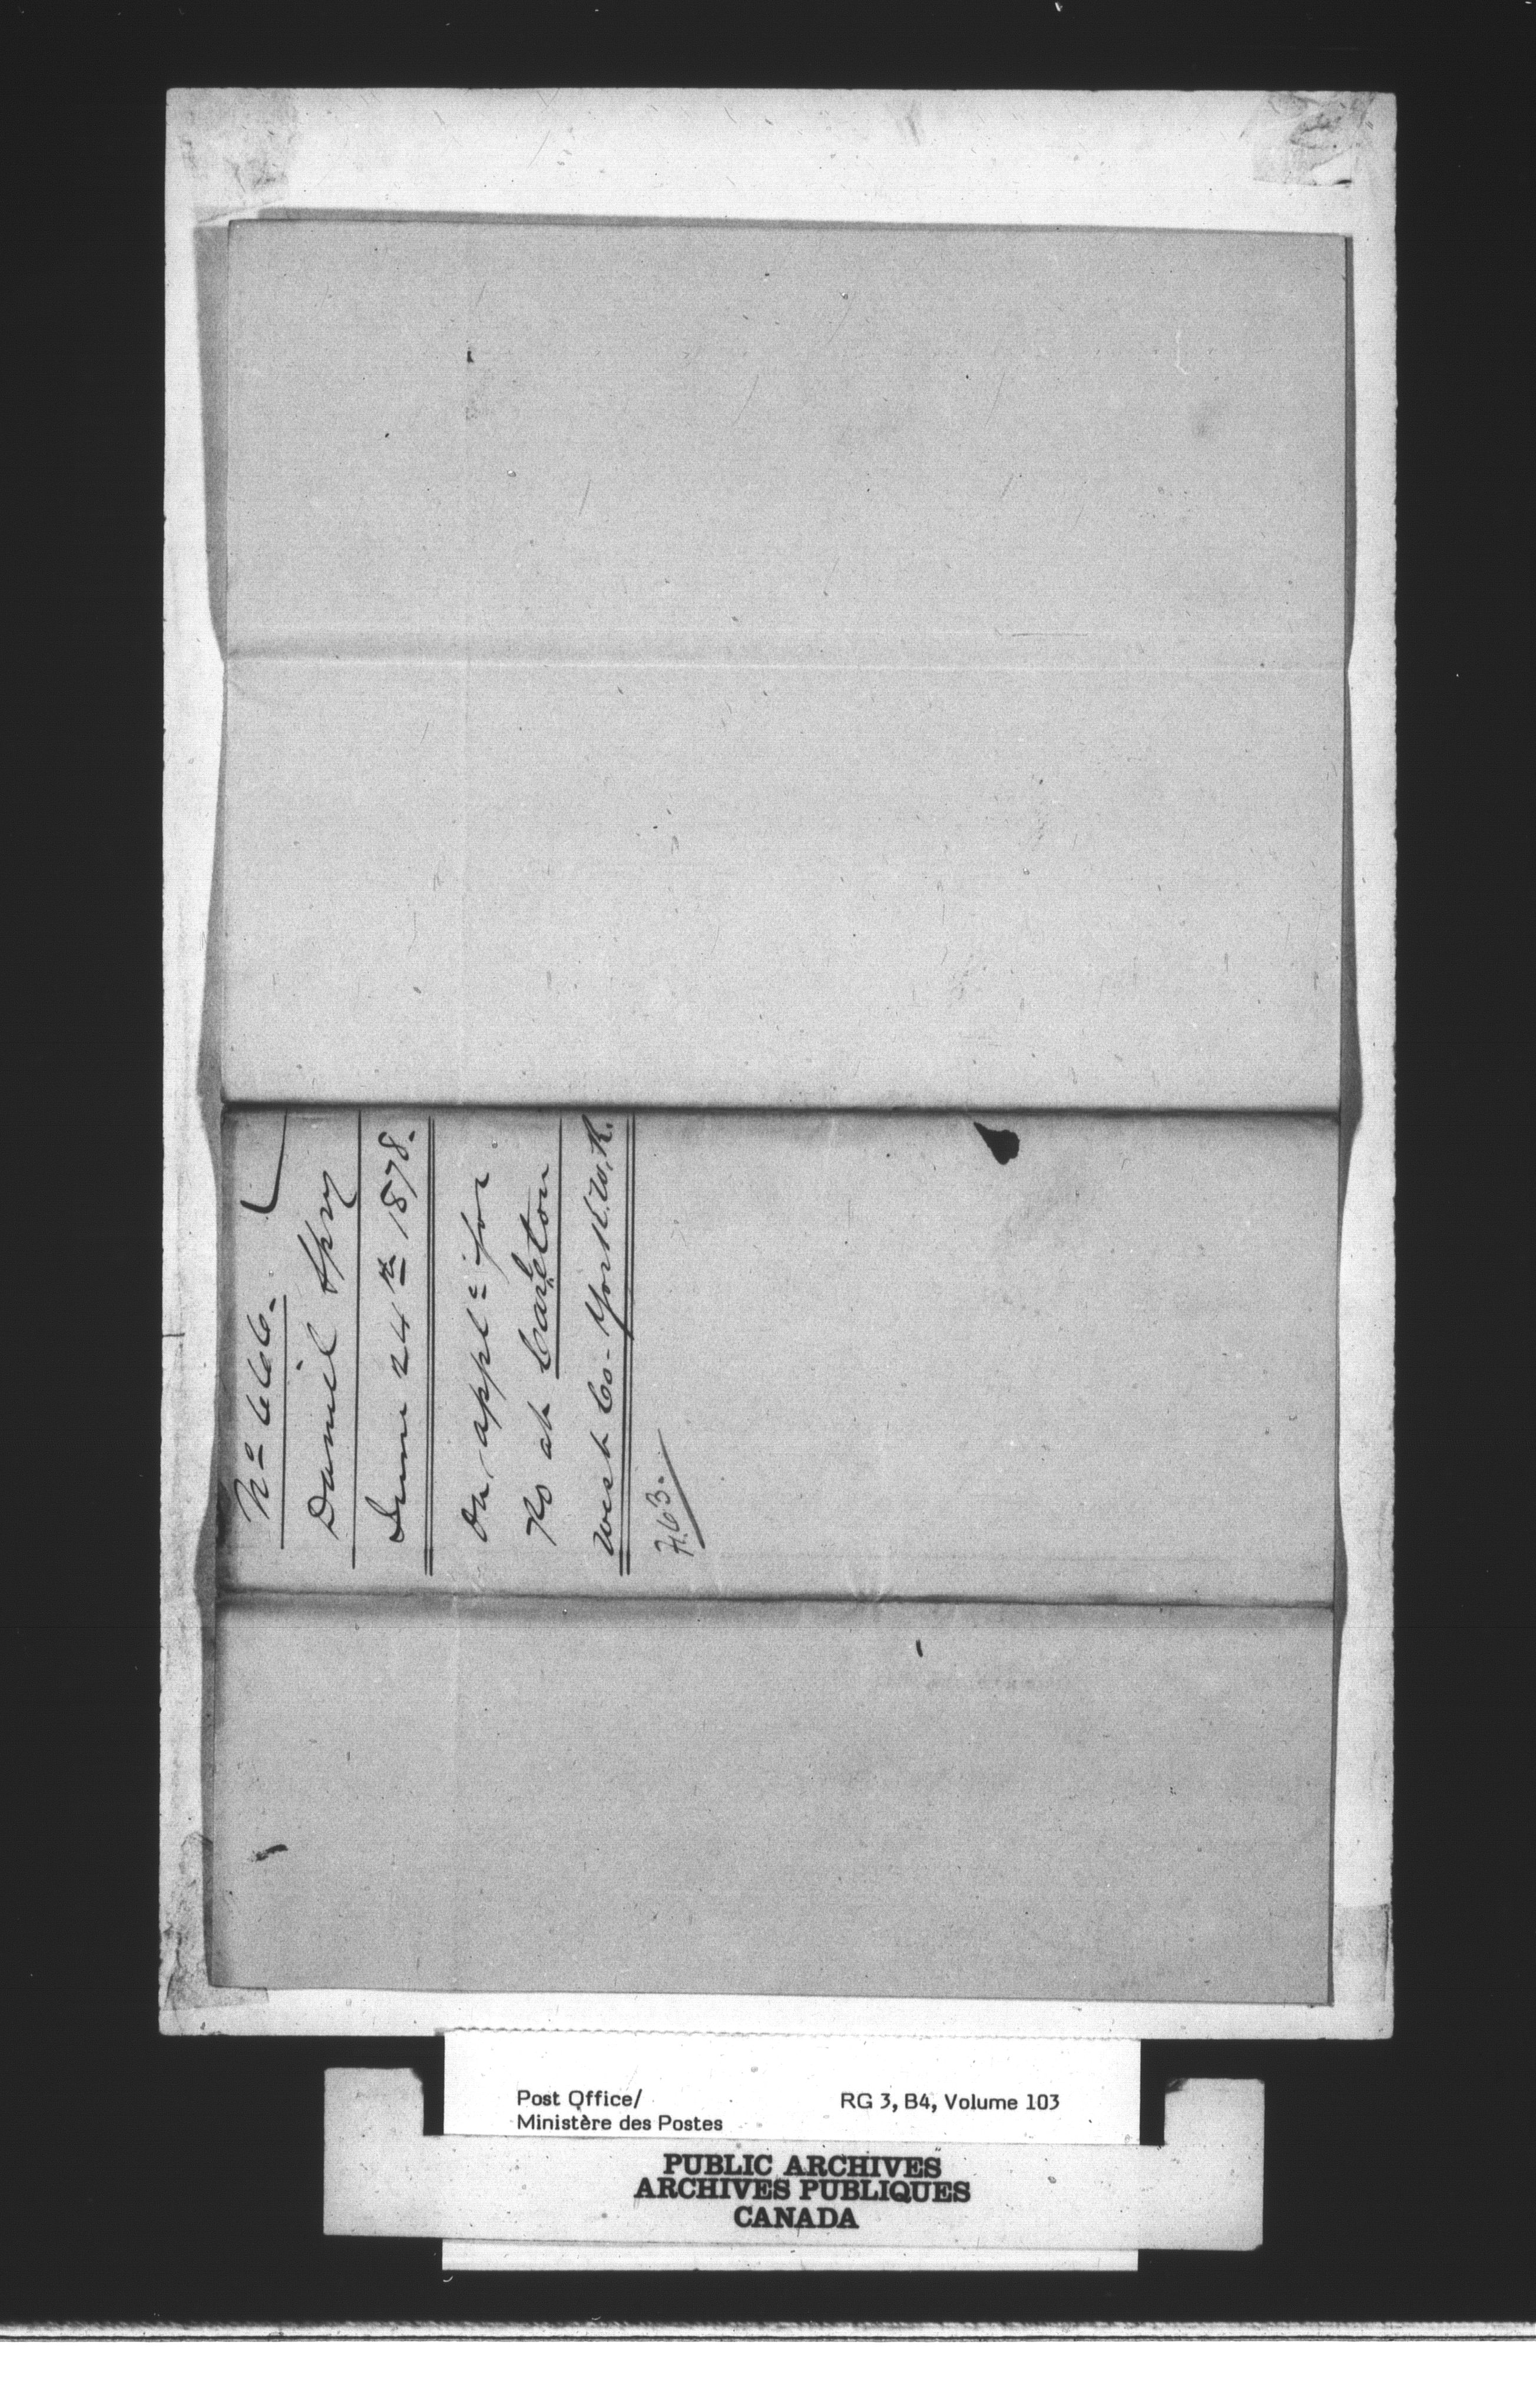 No 666.
Daniel Spry
June 24th 1878.
On applc for
PO at Carlton
West Co. York. W.R.
763.
Post Office/
Ministère des Postes
RG 3, B4, Volume 103
PUBLIC ARCHIVES
ARCHIVES PUBLIQUES
CANADA